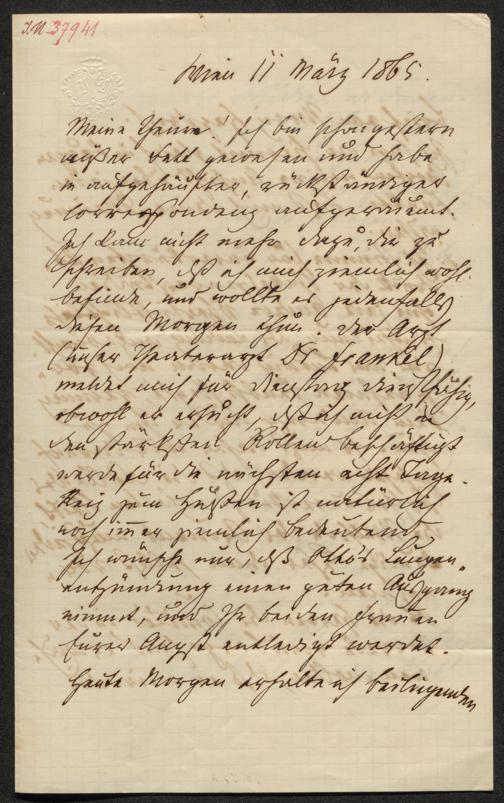 J.N. 37941
Wien 11 März 1865.
Meine Theure! Ich bin schon gestern
außer Bett gewesen und habe
in aufgehäufter, rückständiger
Correspondenz aufgeräumt.
Ich kam nicht mehr dazu, dir zu
schreiben, dß ich mich ziemlich wohl
befinde, und wollte es jedenfalls
diesen Morgen thun. Der Arzt
(unser Theaterarzt Dr Frankel)
meldet mich für Dienstag dienstfähig,
obwohl er ersucht, dß ich nicht in
den stärksten Rollen beschäftigt
werde für die nächsten acht Tage.
Reiz zum Husten ist natürlich
noch immer ziemlich bedeutend
Ich wünsche nur, dß Otto's Lungen-
entzündung einen guten Ausgang
nimmt, und Ihr beiden Frauen
Eurer Angst entledigt werdet.
Heute Morgen erhalte ich beiliegenden